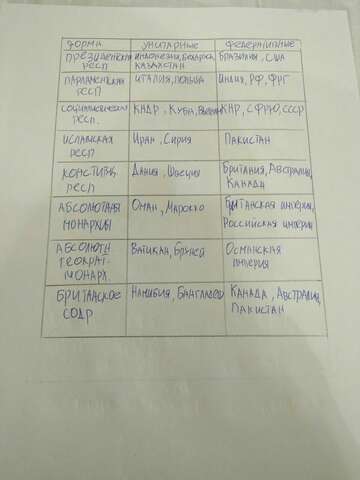 форма унитарные федеративные
президентская индонезия, Беларусь, Бразилия, США
респ Казахстан
парламентская Италия, Польша Индия, РФ, ФРГ
респ
социалистическая КНДР, Куба, Вьетнам КНР, СФРЮ, СССР
респ.
исламская Иран, Сирия Пакистан
респ
констит. Дания, Швеция Британия, Австралия,
респ Канада
абсолютная Оман, Марокко Британская империя,
монархия Российская империя
абсолютн Ватикан, Бруней Османская
теократ. империя
монарх.
Британское Намибия, Бангладеш Канада, Австралия,
содр Пакистан